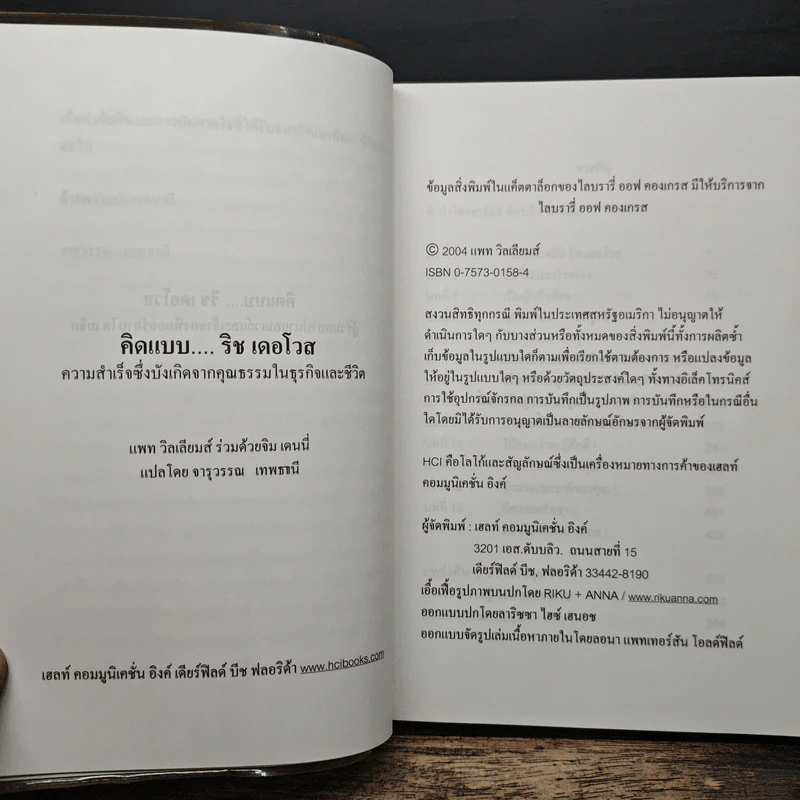 คิดแบบ.... ริช เดอโวส
ความสำเร็จซึ่งบังเกิดจากคุณธรรมในธุรกิจและชีวิต
แพท วิลเลียมส์ ร่วมด้วยจิม เดนนี่
แปลโดย จารุวรรณ เทพธานี
เฮลท์ คอมมูนิเคชั่น อิงค์ เดียร์ฟิลด์ บีช ฟลอริด้า www.hcibooks.com
ข้อมูลสิ่งพิมพ์ในแค็ตตาล็อกของไลบรารี่ ออฟ คองเกรส มีให้บริการจาก
ไลบรารี่ ออฟ คองเกรส
© 2004 แพท วิลเลียมส์
ISBN 0-7573-0158-4
สงวนสิทธิทุกกรณี พิมพ์ในประเทศสหรัฐอเมริกา ไม่อนุญาตให้
ดำเนินการใดๆ กับบางส่วนหรือทั้งหมดของสิ่งพิมพ์นี้ทั้งการผลิตซ้ำ
เก็บข้อมูลในรูปแบบใดก็ตามเพื่อเรียกใช้ตามต้องการ หรือแปลงข้อมูล
ให้อยู่ในรูปแบบใดๆ หรือด้วยวัตถุประสงค์ใดๆ ทั้งทางอิเล็คโทรนิคส์
การใช้อุปกรณ์จักรกล การบันทึกเป็นรูปภาพ การบันทึกหรือในกรณีอื่น
ใดโดยมิได้รับการอนุญาตเป็นลายลักษณ์อักษรจากผู้จัดพิมพ์
HCI คือโลโก้และสัญลักษณ์ซึ่งเป็นเครื่องหมายทางการค้าของเฮลท์
คอมมูนิเคชั่น อิงค์
ผู้จัดพิมพ์ : เฮลท์ คอมมูนิเคชั่น อิงค์
3201 เอส.ดับบลิว. ถนนสายที่ 15
เดียร์ฟิลด์ บีช, ฟลอริด้า 33442-8190
เอื้อเฟื้อรูปภาพบนปกโดย RIKU + ANNA / www.rikuanna.com
ออกแบบปกโดยลาริซซา ไฮซ์ เฮนอช
ออกแบบจัดรูปเล่มเนื้อหาภายในโดยลอนา แพทเทอร์สัน โอลด์ฟิลด์